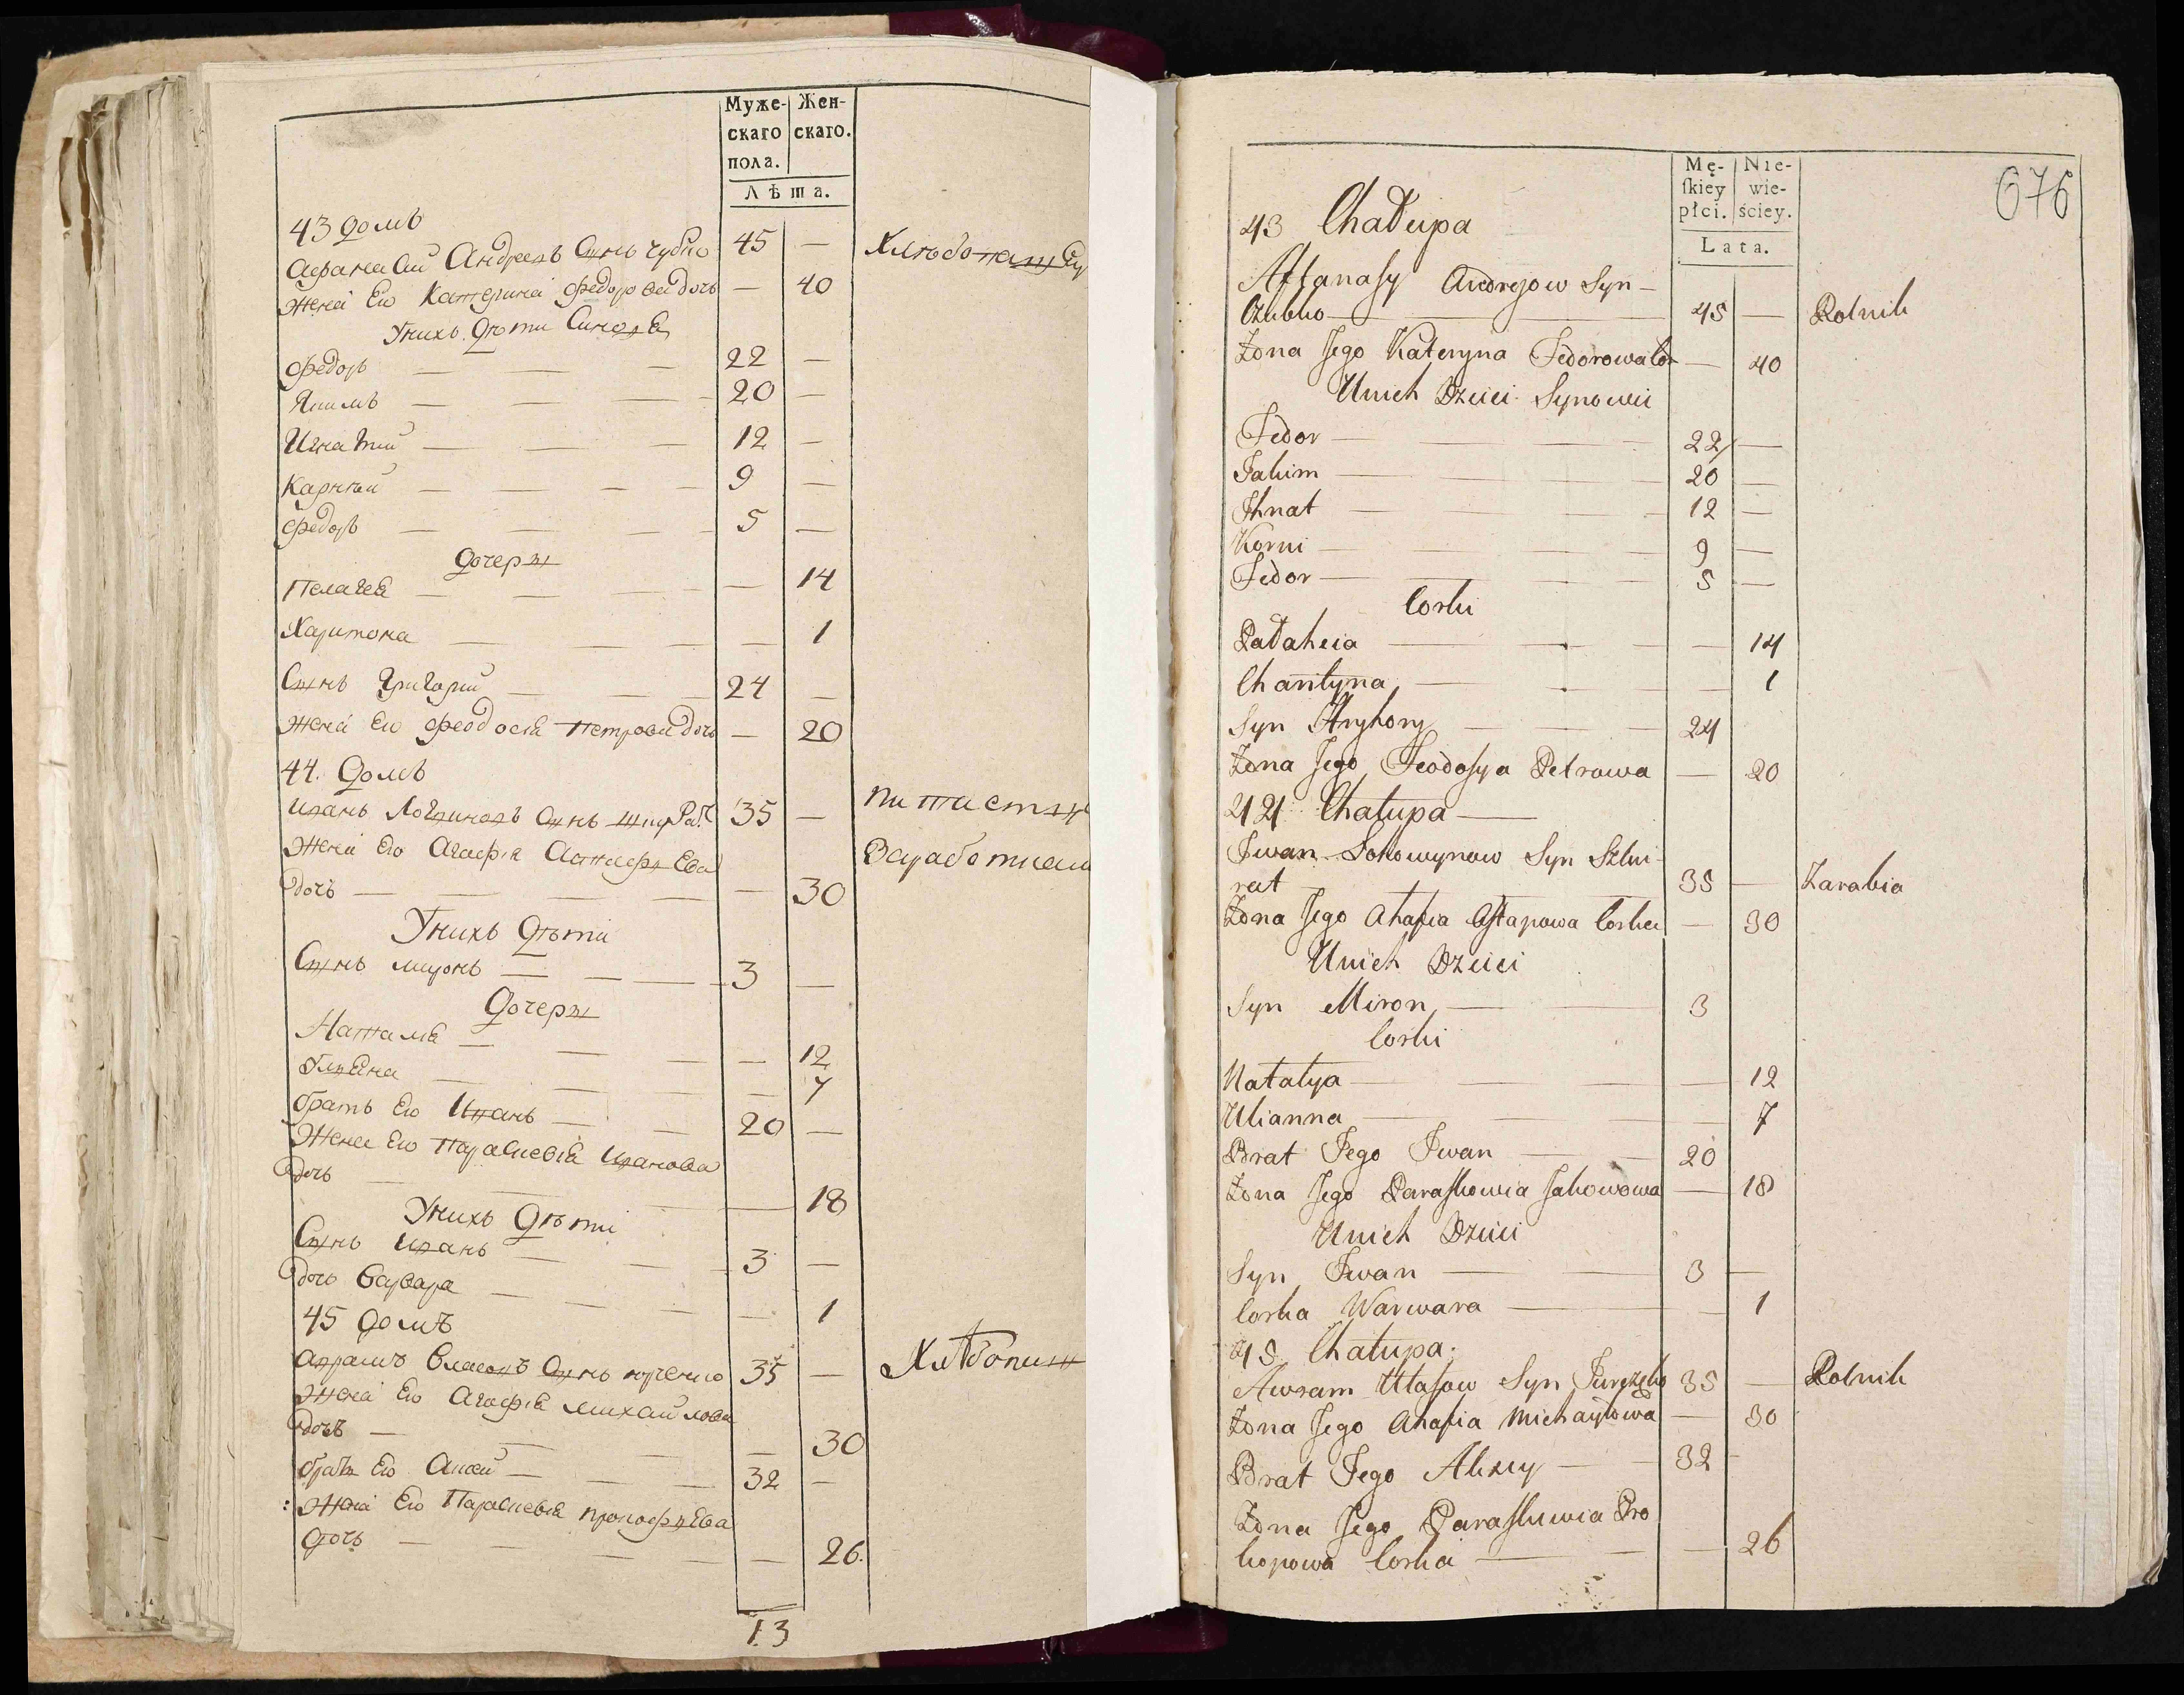 Муже- Жен-
скаго скаго.
пола.
Лѣта.
43 домъ
Афанасий Андреевъ Сынъ Чубко 45 — Хлебопашец
Жена Ево Катерина Федорова дочь — 40
У нихъ Дѣти Синовя
Федоръ — — — 22 —
Якимъ — — — 20 —
Игнатий — — — 12 —
Карнѣй — — — 9 —
Федоръ — — — 5 —
Дочеры
Пелагея — — — 14
Харитона — — — 1
Сынъ Григорий — — 24 —
Жена Ево Феодосия Петрова дочь — 20
44. Домъ
Иванъ Логвиновъ Сынъ 35 — питается
Жена Ево Агафия Астафьева Заработкам
дочь — — — 30
У нихъ Дѣти
Сынъ Миронъ — — 3 —
Дочеры
Наталия — — — 12
Улияна — — — 7
братъ Ево Иванъ — — 20 —
Жена Ево Параскевия Иванова
дочь — — — 18
У нихъ Дѣти
Сынъ Иванъ — — 3 —
дочь Варвара — — — 1
45 Домъ
Аврамъ Власовъ Сынъ Юрченко 35 — Хлѣбопаш
Жена Ево Агафия Михайлова
дочь — — — 30
братъ Ево Алексей — — 32 —
Жена Ево Параскевия Прокофьева
Дочь — — — 26.
13
676
Mę- Nie-
skiey wie-
płci. ściey.
Lata.
43 Chałupa
Affanasy Andrejow Syn —
Czubko — 45 — Rolnik
Żona Jego Kateryna Fedorowa Co — 40
Unich Dzieci Synowie
Fedor — 22 —
Jakim — 20 —
Ihnat — 12 —
Korni — 9 —
Fedor — 5 —
Corki
Pałaheia — — 14
Charityna — — 1
Syn Hryhory — 24
Żona Jego Feodosya Petrowa — 20
44 Chałupa —
Iwan Lohowynow Syn Szku-
rat — 35 — Zarabia
Żona Jego Ahafia Astapowa Corka — 30
Unich Dzieci
Syn Miron — 3
Corki
Natalya — — 12
Ulianna — — 7
Brat Jego Iwan — 20
Żona Jego Paraskowia Jakowowa — 18
Unich Dzieci
Syn Iwan — 3 —
Corka Warwara — — 1
45 Chałupa.
Awram Ułasow Syn Jurczeko 35 — Rolnik
Żona Jego Ahafia Michayłowa — 30
Brat Jego Alexey — 32 -
Żona Jego Paraskiewia Pro
kopowa Corka — — 26